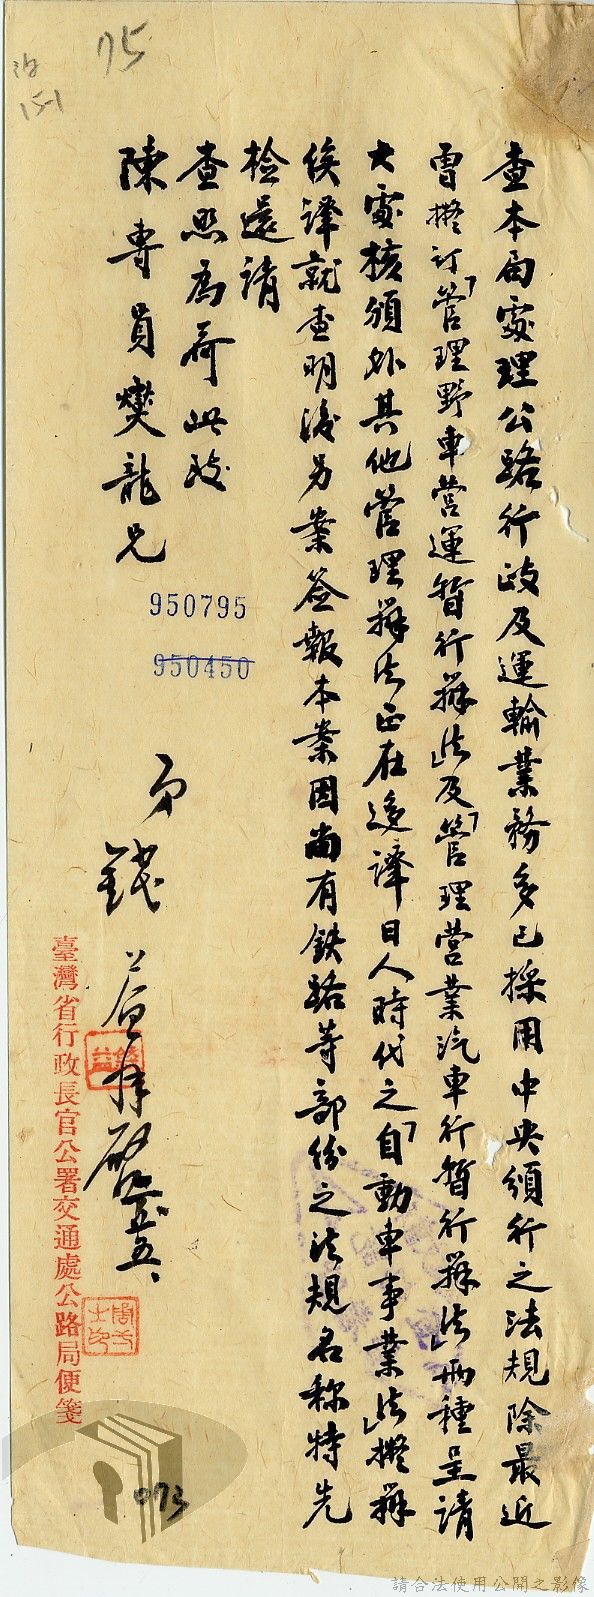 75
查本局處理公路行政及運輸業務多已採用中央頒行之法規除最近
曾擬訂「管理野車營運暫行辦法」及「管理營業汽車行暫行辦法」兩種呈請
大處核頒外其他管理辦法正在迻譯日人時代之「自動車事業法」擬辦
俟譯就查明後另案簽報本案因尚有鉄路等部份之法規名称特先
檢還請
查照為荷此致
陳專員燮龍兄
950795
950450
弟錢益拜啟
臺灣省行政長官公署交通處公路局便箋
073
請合法使用公開之影像